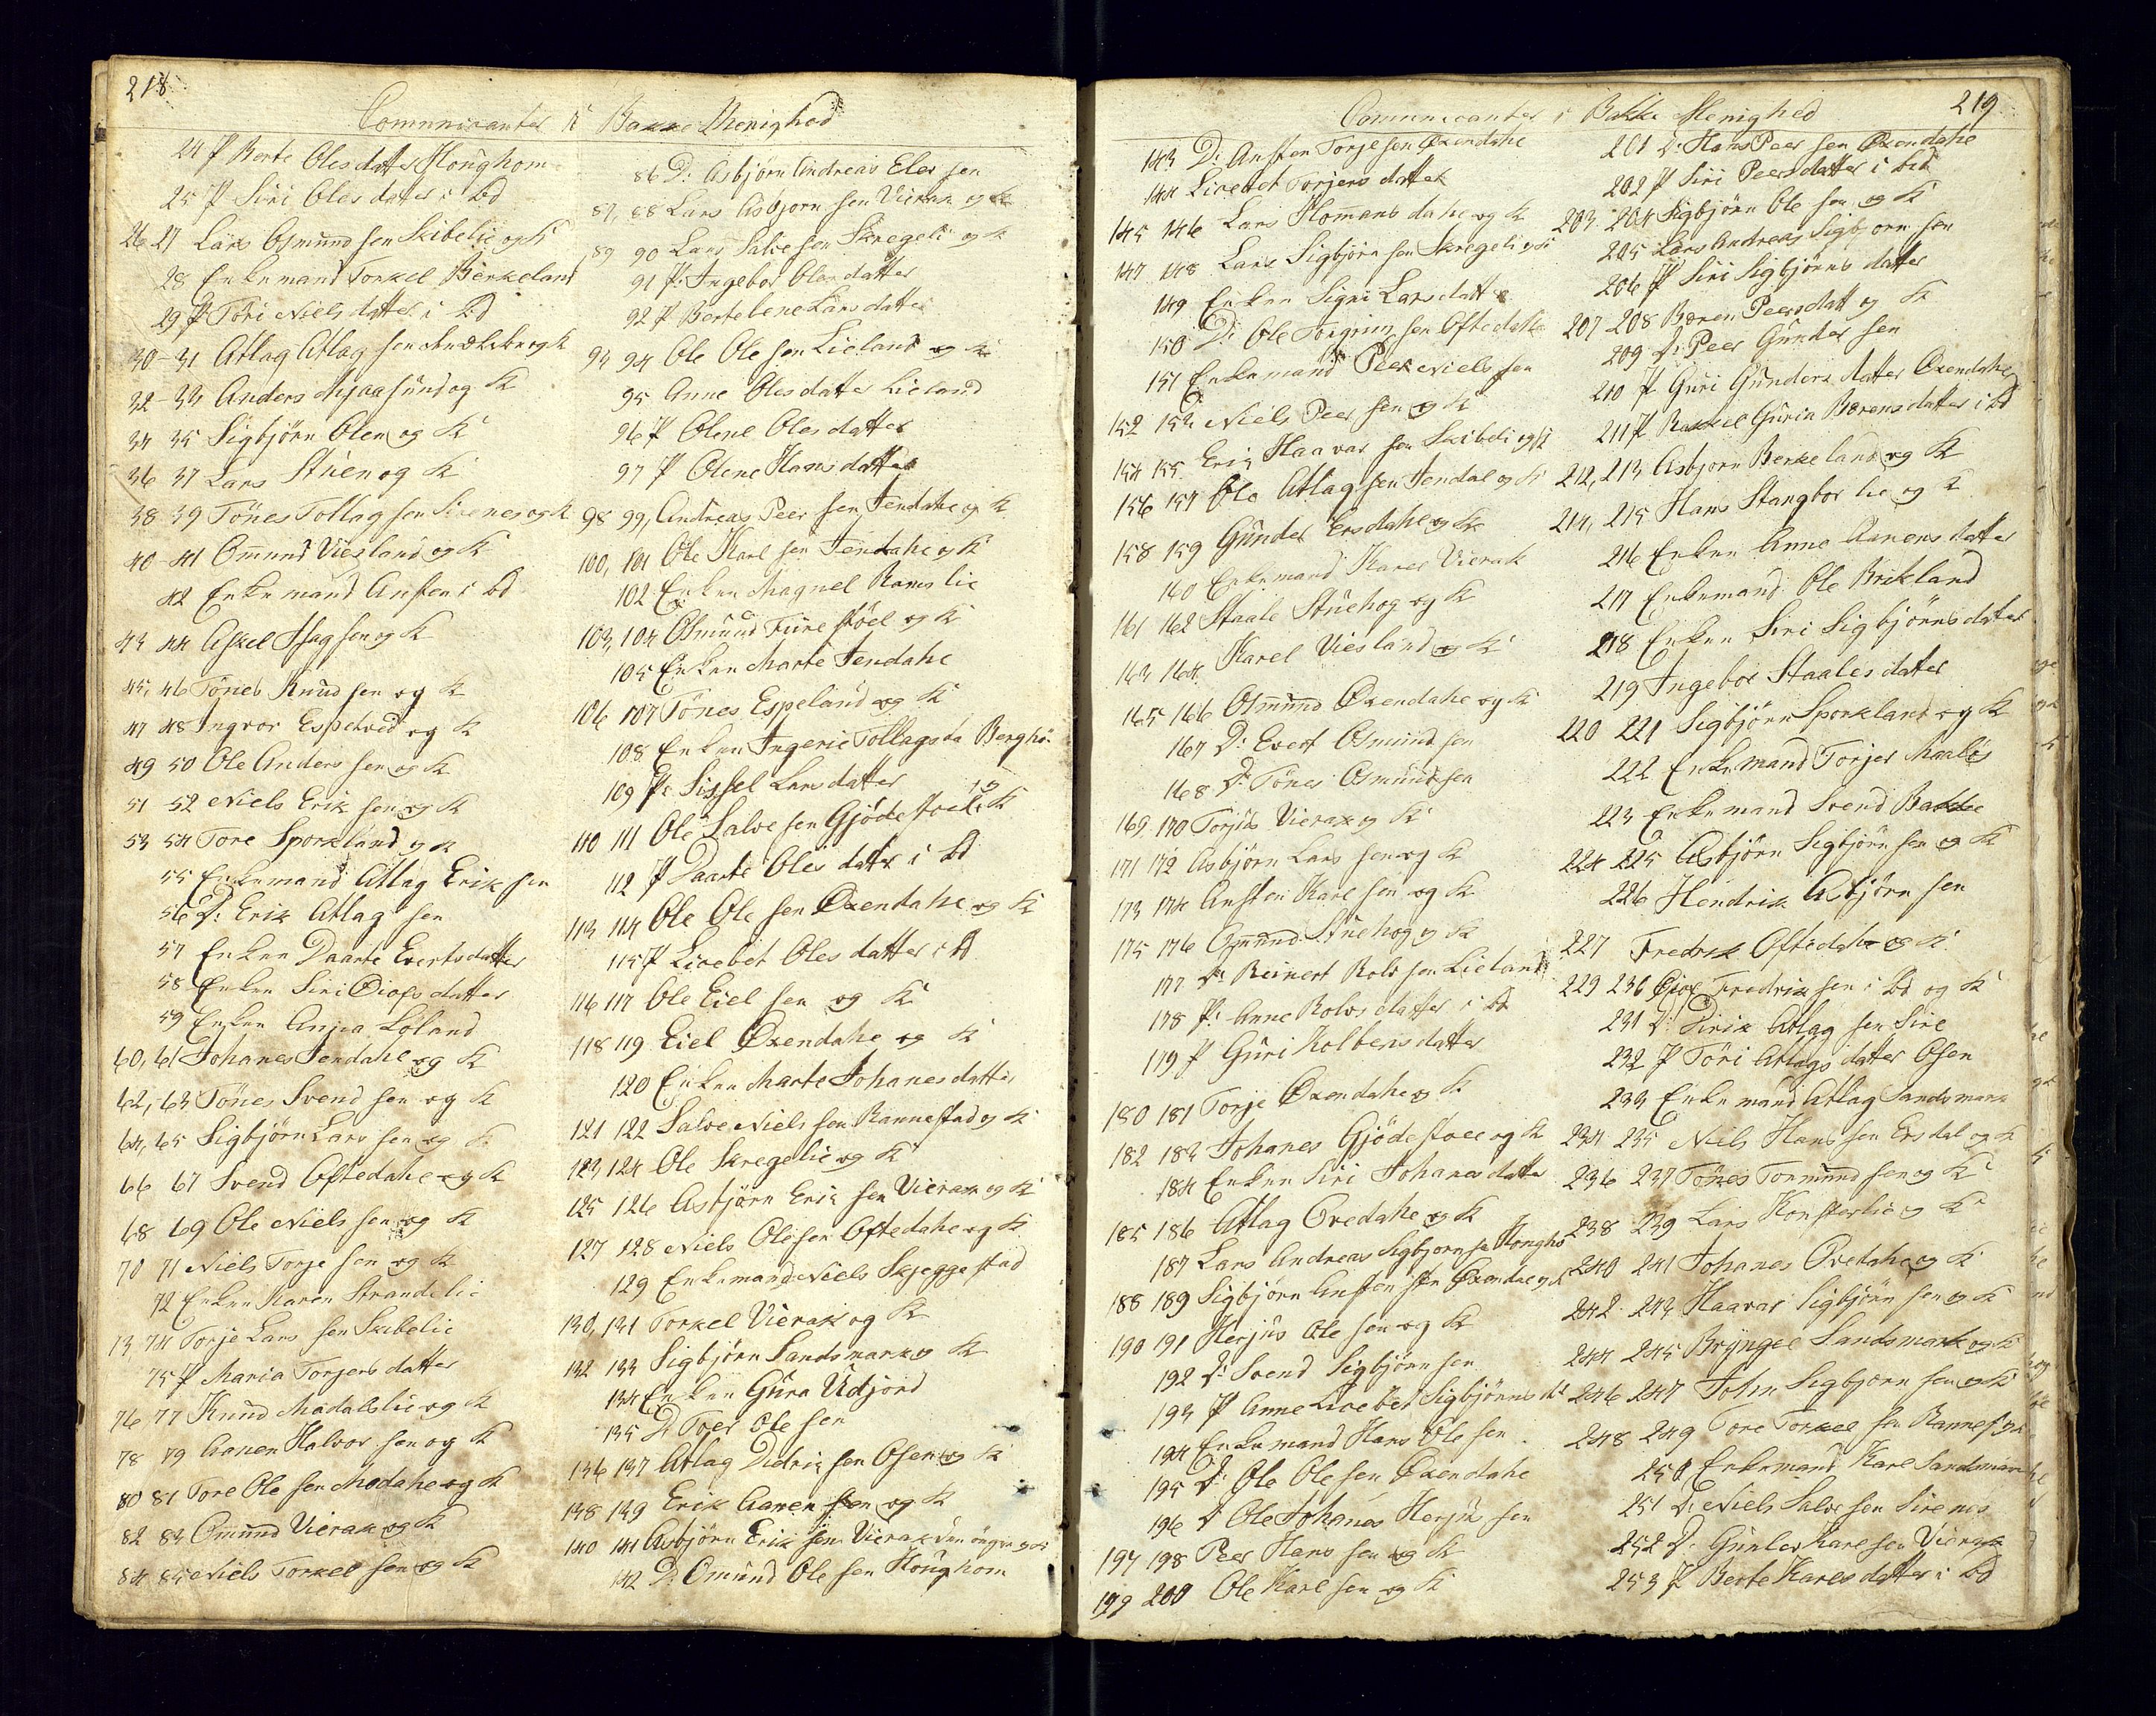 218
Comunicanter i Bakke Menighed
24 P Berte Olesdatter Houghom
25 P Siri Olesdatter i bd
26 27 Lars Osmundsen Skibelie og K
28 Enkemand Torkel Birkeland
29 P Tori Nielsdatter i bd
30-31 Atlag Atlagsen og K
32-33 Anders Mjaasund og K
34 35 Sigbjörn Olen og K
36 37 Lars Stuen og K
38 39 Tönes Tollagsen Sirenes og K
40-41 Omund Viesland og K
42 Enkemand Ansten i bd
43 44 Askel Isagsen og K
45, 46 Tönes Knudsen og K
47 48 Ingvor Espetved og K
49 50 Ole Andersen og K
51 52 Niels Eriksen og K
53 54 Tore Sporkland og K
55 Enkemand Atlag Eriksen
56 D: Erik Atlagsen
57 Enken Daarte Evertsdatter
58 Enken Siri Oiofsdatter
59 Enken Anna Löland
60, 61 Johanes Jendahe og K
62,-63 Tönes Svendsen og K
64, 65 Sigbjörn Larssen og K
66 67 Svend Oftedahe og K
68 69 Ole Nielssen og K
70 71 Niels Torjesen og K
72 Enken Karen Strandelie
73 74 Torje Larssen Skibelie
75 P Maria Torjersdatter
76 77 Knud Madalslie og K
78 79 Aanen Halvorsen og K
80 81 Tore Olesen Modahe og K
82 83 Omund Vierak og K
84 85 Niels Torkelsen og K
86 D: Asbjörn Andreas Elersen
87, 88 Lars Asbjornsen Vierak og K
89 90 Lars Salvesen Skregeli og K
91 P: Ingebor Olesdatter
92 P Bertelene Larsdatter
93 94 Ole Olesen Lieland og K
95 Anne Olesdatter Lieland
96 P Olene Olesdatter
97 P Olene Hansdatter
98 99, Andreas Peersen Jendahe og K
100, 101 Ole Karlsen Jendahe og K
102 Enken Magnel Ramslie
103, 104 Osmund Furestöel og K
105 Enken Marte Jendahe
106 107 Tönes Espeland og K
108 Enken Ingerie Tollagsda Berghö.
109 P: Sissel Larsdatter
110 111 Ole Salvesen Gjödestoel og K
112 P Daarte Olesdatter i bd
113 114 Ole Olesen Oxendahe og K
115 P Lisebet Olesdatter i bd
116 117 Ole Eielsen og K
118 119 Eiel Oxendahe og K
120 Enken Marte Johanesdatter
121 122 Salve Nielssen Rannestad og K
123, 124 Ole Skregelie og K
125 126 Asbjörn Eriksen Vierak og K
127 128 Niels Olesen Oftedahe og K
129 Enkemand Niels Skjeggestad
130, 131 Torkel Vierak og K
132 133 Sigbjörn Sandsmark og K
134 Enken Gura Udjord
135 D Toer Olesen
136 137 Atlag Didriksen Osen og K
138 139 Erik Aanensen og K
140 141 Asbjörn Eriksen Vierak den öngre og K
142 D: Omund Olesen Houghom
219
Comunicanter i Bakke Menighed
143 D: Ansten Torjesen Oxendahe
144 Lisebet Torjersdatter
145 146 Lars Plomansdahe og K
147 148 Lars Sigbjörnsen Skregeli og K
149 Enken Signi Larsdatter
150 D: Ole Torgrimsen Oftedahe
151 Enkemand Peer Nielssen
152 153 Niels Peersen og K
154 155 Erik Haavarsen Skibeli og K
156 157 Ole Atlagsen Jendal og K
158 159 Gunder Ersdahe og K
160 Enkemand Karel Vierak
161 162 Staale Stuehog og K
163 164 Karel Viesland og K
165 166 Osmund Oxendahe og K
167 D: Evert Osmundsen
168 D: Tönes Osmundsen
169 170 Torjus Vierak og K
171 172 Asbjörn Larssen og K
173 174 Ansten Karlsen og K
175 176 Omund Stuehog og K
177 D: Reinert Rolvsen Lieland
178 P: Anne Rolvsdatter i bd
179 P Guri Kolbensdatter
180 181 Torje Oxendahe og K
182 183 Johanes Gjödestoel og K
184 Enken Siri Johanesdatter
185 186 Atlag Ovedahe og K
187 Lars Andreas Sigbjornsen Hougho
188 189 Sigbjörn Anstensen Oxendae og K
190 191 Herjus Olesen og K
192 D: Svend Sigbjörnsen
193 P Anne Lisebet Sigbjörnsdt
194 Enkemand Hans Olesen
195 D: Ole Olesen Oxendahe
196 D Ole Johanes Herjussen
197 198 Peer Hanssen og K
199 200 Ole Karlsen og K
201 D: Hans Peersen Oxendahe
202 P Siri Peersdatter i bd
203-204 Sigbjörn Olesen og K
205 Lars Andreas Sigbjornsen
206 P Siri Sigbjörnsdatter
207-208 Bören Peersdatt og K
209 D: Peer Gundersen
210 P Guri Gundersdatter Oxendahe
211 P Rakkel Guria Börensdatter i bd
212, 213 Asbjorn Berkeland og K
214, 215 Hans Stangborlie og K
216 Enken Anne Aanensdatter
217 Enkemand Ole Brikland
218 Enken Siri Sigbjörnsdatter
219 Ingebor Staalesdatter
220 221 Sigbjörn Sporkland og K
222 Enkemand Torjer Maabö
223 Enkemand Svend Bakke
224 225 Asbjörn Sigbjörnsen og K
226 Hendrik Asbjörnsen
227 Fredrik Oftedahe og K
229 230 Fredriksen i bd og K
231 D: Dirik Atlagsen Sire
232 P Töri Atlagsdatter Osen
233 Enkemand Atlag Sandsmark
234 235 Niels Hanssen Ersdal og K
236 237 Tönes Tormundsen og K
238 239 Lars Honsterlie og K
240 241 Johanes Ovedahe og K
242. 243, Haavar Sigbjörnsen og K
244 245 Bryngel Sandsmark og K
246 247 John Sigbjornsen og K
248 249 Tore Torkelsen Rannes og K
250 Enkemand Karl Sandsmark
251 D: Niels Salvesen Sirenes
252 D. Gunler Karlsen Vierak
253 P Berte Karlsdatter i bd